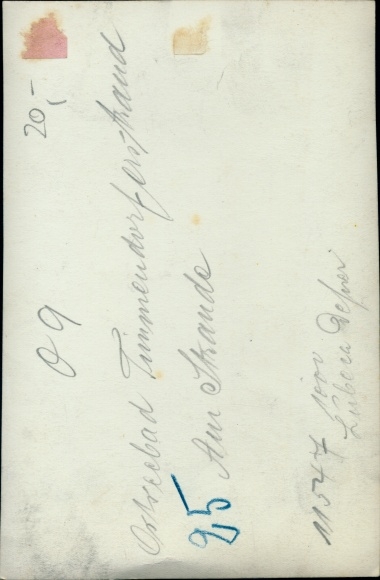 20,-
O 9
Ostseebad Timmendorferstrand
Am Strande
25
11547 1000
Lübeck